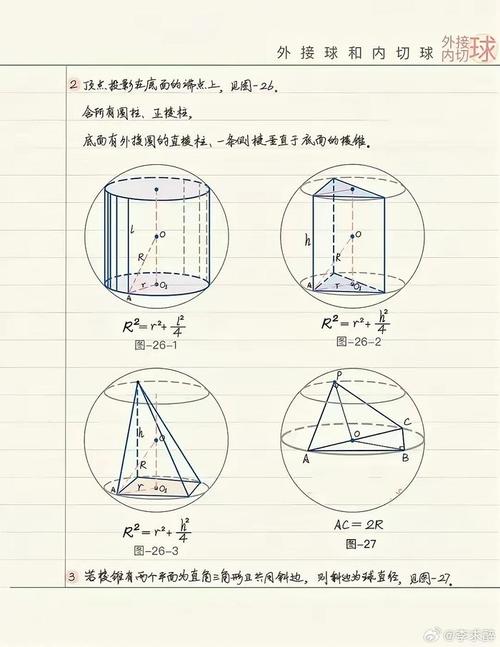 外接球和内切球
外接
内切
球
2 顶点投影在底面的端点上,见图-26.
含所有圆柱、正棱柱,
底面有外接圆的直棱柱、一条侧棱垂直于底面的棱锥.
l
O
R
A
r
O₁
R²=r²+l²/4
图-26-1
h
O
R
A
r
O₁
R²=r²+h²/4
图-26-2
h
O
R
A
r
O₁
R²=r²+h²/4
图-26-3
P
C
O
A
B
AC=2R
图-27
3 若棱锥有两个平面为直角三角形且共用斜边,则斜边为球直径,见图-27.
@李未醉